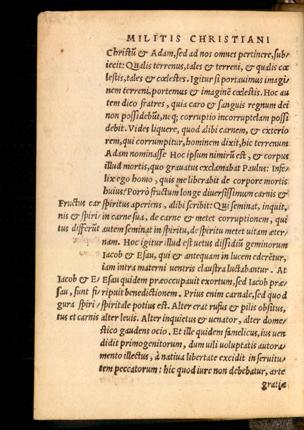 MILITIS CHRISTIANI
Christũ & Adam, sed ad nos omnes pertinere, sub-
iecit: Qualis terrenus, tales & terreni, & qualis cœ
lestis, tales & cœlestes. Igitur si portauimus imagi
nem terreni, portemus & imaginẽ cœlestis. Hoc au
tem dico fratres, quia caro & sanguis regnum dei
non possidebũt, neq; corruptio incorruptelam possi
debit. Vides liquere, quod alibi carnem, & exterio
rem, qui corrumpitur, hominem dixit, hic terrenum
Adam nominasse Hoc ipsum nimirũ est, & corpus
illud mortis, quo grauatus exclamabat Paulus: Infe-
lix ego homo, quis me liberabit de corpore mortis
huius? Porrò fructum longe diuersissimum carnis &
Fructus car spiritus aperiens, alibi scribit: Qui seminat, inquit,
nis & spiri in carne sua, de carne & metet corruptionem, qui
tus differũt autem seminat in spiritu, de spiritu metet uitam æter-
nam. Hoc igitur illud est uetus dissidiũ geminorum
Iacob & Esau, qui & antequam in lucem ederẽtur,
iam intra materni uentris claustra luctabantur. At
Iacob & E/ Esau quidem præoccupauit exortum, sed Iacob præ/
sau, sunt fi/ ripuit benedictionem. Prius enim carnale, sed quod
gura spiri/ spiritale potius est. Alter erat rufus & pilis obsitus,
tus et carnis alter leuis. Alter inquietus & uenator, alter dome-
stico gaudens ocio. Et ille quidem famelicus, ius uen
didit primogenitorum, dum uili uoluptatis autora/
mento illectus, à natiua libertate excidit in seruitu/
tem peccatorum: hic quod iure non debebatur, arte
gratiæ